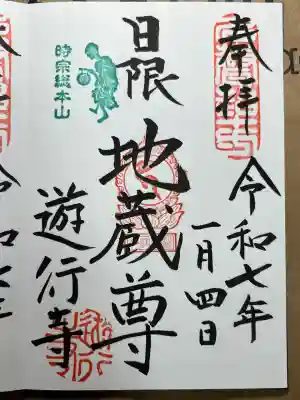 奉拝
令和七年
一月四日
日限
地蔵尊
時宗総本山
遊行寺